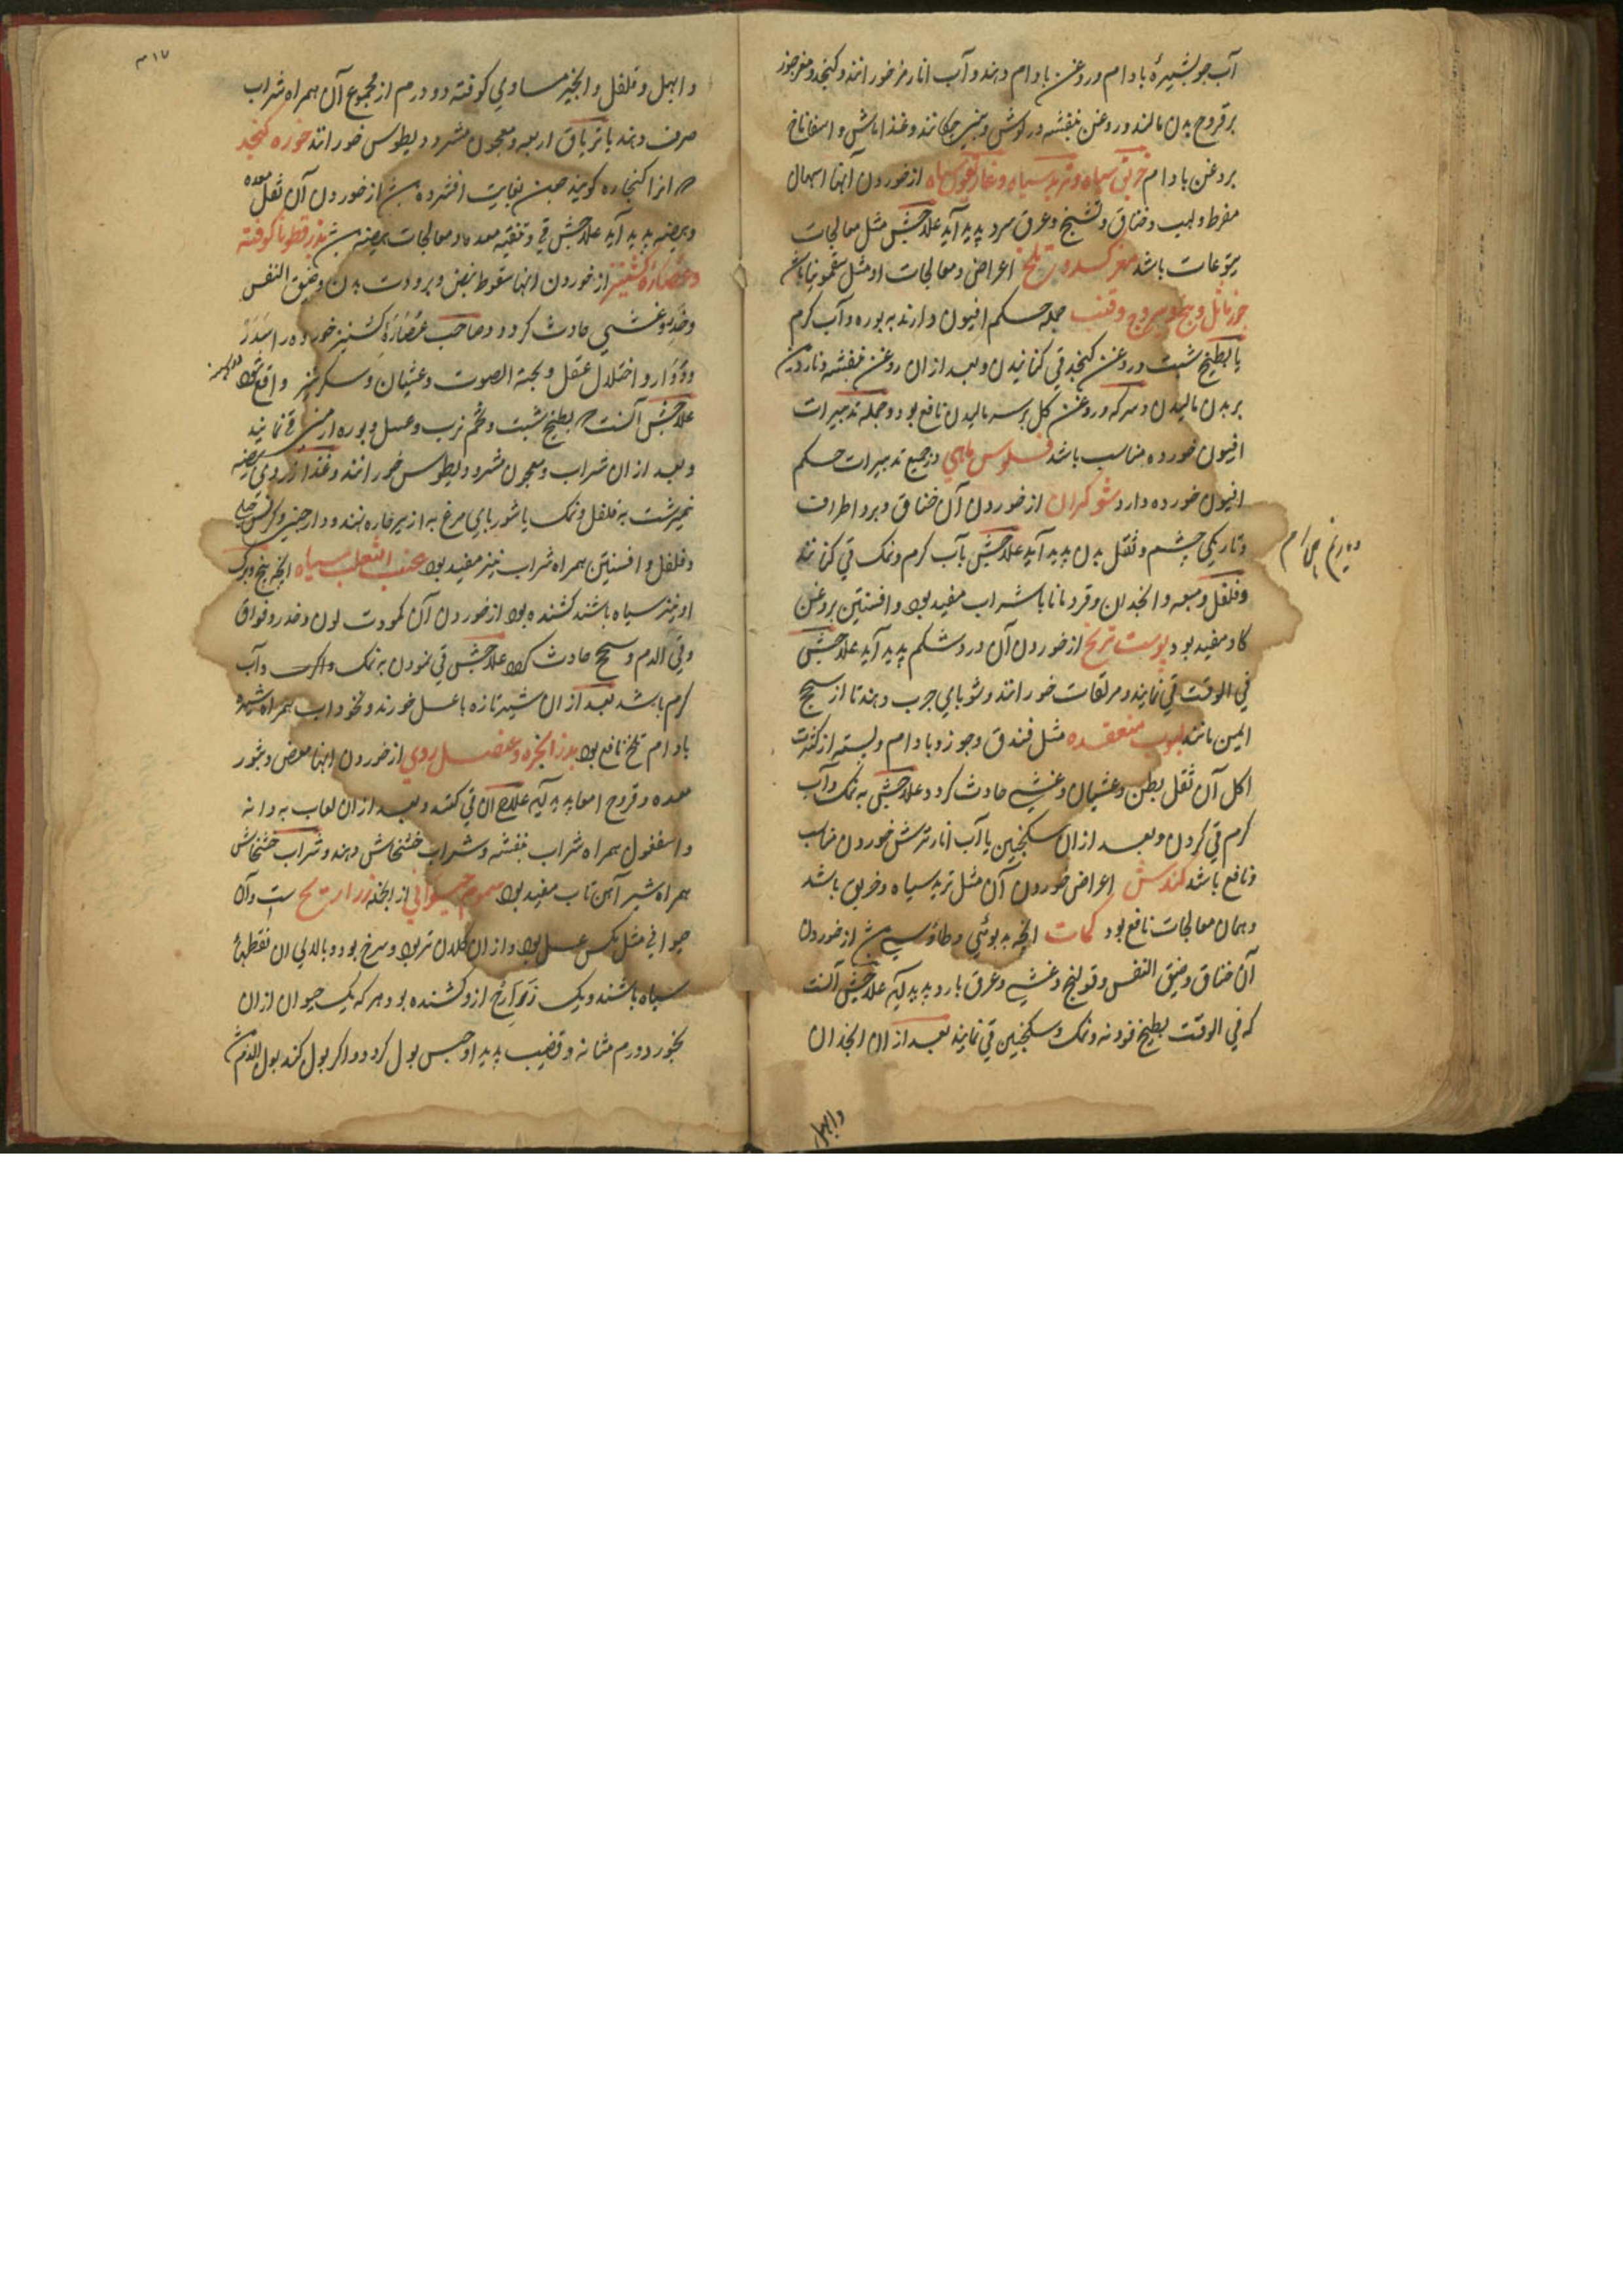 آب جو بشیرهٔ بادام و روغن بادام دهند و آب انار مز خورانند و کنجد و مغز جوز
بر قروح بدن مالند و روغن بنفشه در گوش و بینی چکانند و غذا ماش و اسفاناخ
بروغن بادام خربق سیاه و تربد سیاه و غاریقون سیاه از خوردن آنها اسهال
مفرط و لهیب و خناق و تشنج و عرق سرد پدید آید علاجش مثل معالجات
یتوعات باشد مغز تلخ اعراض و معالجات او مثل سقمونیا باشد
جوز ماثل و بنج و یبروج و قنب جمله حکم افیون دارند به بوره و آب گرم
یا بطبیخ شبت و روغن کنجد قی کنانیدن و بعد ازان روغن بنفشه و ناردین
بر بدن مالیدن و سرکه و روغن گل بر سر مالیدن نافع بود و جمله تدبیرات
افیون خورده مناسب باشد فلوس ماهی در جمیع تدبیرات حکم
افیون خورده دارد شوکران از خوردن آن خناق و برد اطراف
و تاریکی چشم و ثقل بدن پدید آید علاجش بآب گرم و نمک قی کنانند
و فلفل و میعه و انجدان و قردمانا با شراب مفید بود و افسنتین بروغن
گاو مفید بود پوست ترنج از خوردن آن درد شکم پدید آید علاجش
فی الوقت قی نمایند و مرلقات خورانند و شوربای چرب دهند تا از سحج
ایمن مانند لبوب منعقده مثل فندق و جوز و بادام و پسته از کثرت
اکل آن ثقل بطن و غثیان و غشی حادث گردد علاجش به نمک و آب
گرم قی کردن و بعد ازان سکنجبین یا آب انار ترش خوردن مناسب
و نافع باشد کندش اعراض خوردن آن مثل تربد سیاه و خربق باشد
و همان معالجات نافع بود کمات انچه به بوئی و طاؤسی از خوردن
آن خناق و ضیق النفس و قولنج و غشی و عرق بارد پدید آید علاجش آنست
که فی الوقت بطبیخ فودنه و نمک و سکنجبین قی نمایند بعد ازان انجدان
وابهل
۳۱۷
و ابهل و فلفل و انجیر مساوی کوفته دو درم از مجموع آن همراه شراب
صرف دهند یا تریاق اربعه و معجون مثرودیطوس خورانند خوره کنجد
انرا کنجاره گویند چون بغایت افشرده از خوردن آن ثقل معده
و هیضه پدید آید علاجش قی و تنقیه معده و معالجات هیضه بذر قطونا کوفته
و عصاره کشنیز از خوردن انها سقوط نبض و برودت بدن و ضیق النفس
و خدر و غشی حادث گردد و صاحب عصارهٔ کشنیز خورده را سدر
و دوار و اختلال عقل و بحة الصوت و غثیان و سکر نیز واقع شود
علاجش آنست بطبیخ شبت و تخم ترب و عسل و بوره ارمنی قی نمایند
و بعد ازان شراب و معجون مثرودیطوس خورانند و غذا زردی بیضه
نیمبرشت به فلفل و نمک یا شوربای مرغ به ازیر فاره نهند و دارچینی
و فلفل و افسنتین همراه شراب نیز مفید بود عنب الثعلب سیاه انچه بیخ و برگ
او نیز سیاه باشند کشنده بود از خوردن آن کمودت لون و خدر و فواق
و قی الدم و سحج حادث گردد علاجش قی نمودن به نمک و آب
گرم باشد بعد ازان شیر تازه با عسل خورند و نخود اب همراه شیره
بادام تلخ نافع بود بذر انجره و عنصل روی از خوردن اینها مغص و بثور
معده و قروح امعا پدید آید علاج آن قی کنند و بعد ازان لعاب به دانه
و اسفغول همراه شراب بنفشه و شراب خشخاش دهند و شراب خشخاش
همراه شیر آهن تاب مفید بود سموم حیوانی از انجمله ذراریح است و آن
حیوانی مثل مگس عسل بود و ازان کلان تر بود و سرخ بود و بالای آن نقطهای
سیاه باشند و یک ذراریح ازو کشنده بود و هر که یک حیوان ازان
بخورد ورم مثانه و قضیب پدید آید و حبس بول گردد و اگر بول کند بول الدم